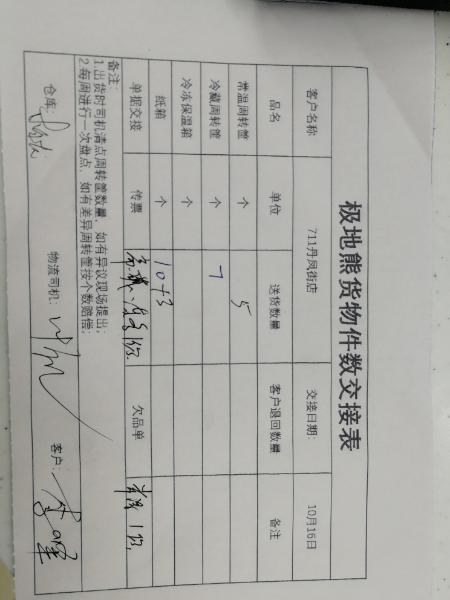 极地熊货物件数交接表
客户名称 711丹凤街店 交接日期: 10月16日
品名 单位 送货数量 客户退回数量 备注
常温周转筐 个 5
冷藏周转筐 个 7
冷冻保温箱 个
纸箱 个 10+3
单据交接 传票 1份 欠品单 1份
备注:
1.出货时司机清点周转筐数量,如有异议现场提出;
2.每周进行一次盘点,如有差异周转筐按个数赔偿;
仓库: 物流司机: 客户: